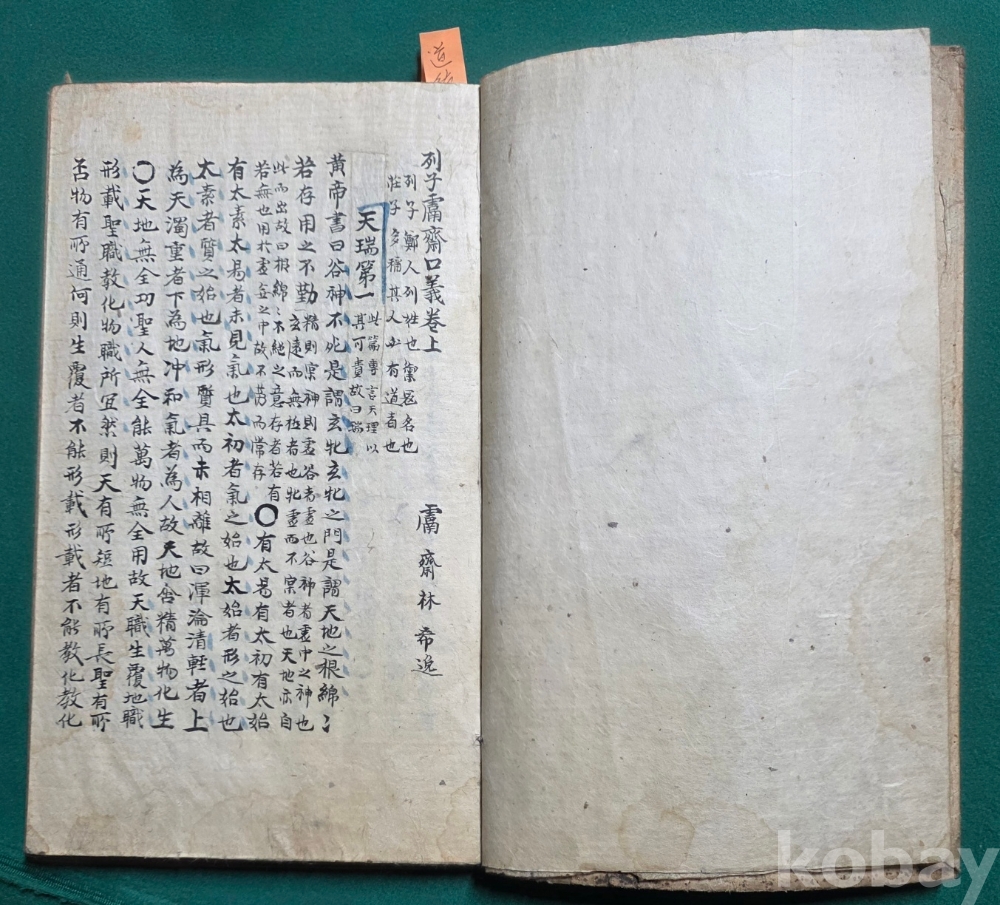 道
列子鬳齋口義卷上
鬳齋林希逸
列子鄭人列姓也禦寇名也
莊子多稱其人必有道者也
天瑞第一
此篇專言天理以
其可貴故曰瑞
黃帝書曰谷神不死是謂玄牝玄牝之門是謂天地之根綿〻
若存用之不勤
精則實神則虛谷者虛也谷神者虛中之神也
玄遠而無極者也牝虛而不實者也天地亦自
此而出故曰根綿〻不絕之意存者若有
若無也用於虛無之中故不勞而常存
〇有太易有太初有太始
有太素太易者未見氣也太初者氣之始也太始者形之始也
太素者質之始也氣形質具而未相離故曰渾淪清輕者上
為天濁重者下為地冲和氣者為人故天地含精萬物化生
〇天地無全功聖人無全能萬物無全用故天職生覆地職
形載聖職教化物職所宜然則天有所短地有所長聖有所
否物有所通何則生覆者不能形載形載者不能教化教化
kobay